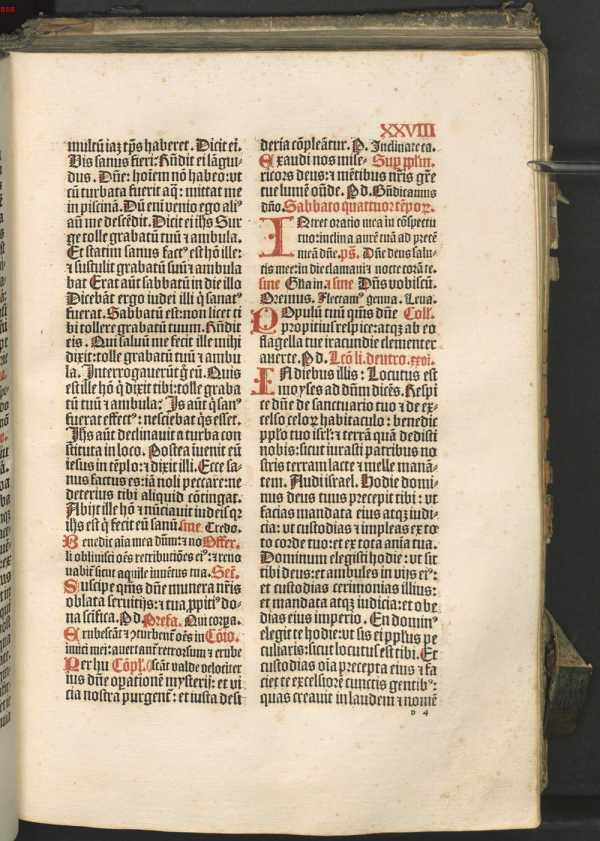 XXVIII
multū iaꝫ tp̄s haberet. Dicit ei.
Vis sanus fieri: Rn̄dit ei lāgui-
dus. Dn̄e: hoīem nō habeo: vt
cū turbata fuerit aq̄: mittat me
in piscinā. Dū em̄ venio ego ali⁹
an̄ me descēdit. Dicit ei ih̄s Sur
ge tolle grabatū tuū ⁊ ambula.
Et statim sanus fact⁹ est hō ille:
⁊ sustulit grabatū suū ⁊ ambula
bat Erat aūt sabbatū in die illo
Dicebāt ergo iudei illi q̇ sanat⁹
fuerat. Sabbatū est: non licet ti
bi tollere grabatū tuum. Rn̄dit
eis. Qui saluū me fecit ille mihi
dixit: tolle grabatū tuū ⁊ ambu
la. Interrogauerūt ḡ eū. Quis
est ille hō q̇ dixit tibi: tolle graba
tū tuū ⁊ ambula: Is aūt q̇ san⁹
fuerat effect⁹: nesciebat q̇s esset.
Ih̄s aūt declinauit a turba con
stituta in loco. Postea īuenit eū
iesus in tēplo: ⁊ dixit illi. Ecce sa-
nus factus es: iā noli peccare: ne
deterius tibi aliquid cōtingat.
Abijt ille hō ⁊ nūciauit iudeis qꝛ
ih̄s est q̇ fecit eū sanū. sine Credo.
Benedic aīa mea dūm: ⁊ no Offer.
li obliuisci oēs retributiōes ei⁹: ⁊ reno
vabit̄ sicut aquile iuuētus tua. Sec̄.
Suscipe q̄ms dn̄e munera nr̄is
oblata seruitijs: ⁊ tua ꝓpiti⁹ do-
na scifica. P̄ d. Prefa. Qui corꝑa.
Erubescāt ⁊ ꝯturbent̄ oēs in Cōio.
imici mei: auertant̄ retrorsum ⁊ erube
Per hu Cōpl̄. scāt valde velociter
ius dn̄e oꝑationē mysterij: et vi
cia nostra purgent̄: et iusta desi
deria cōpleātur. P̄. Inclinate ca.
Exaudi nos mise- Suꝑ ppl̄m.
ricors deus: ⁊ mētibus nr̄is gr̄e
tue lumē on̄de. P̄ d. Bn̄dicamus
dn̄o. Sabbato quattuor tēpoꝝ.
INtret oratio mea in cōspectu
tuo: inclina aurē tuā ad precē
meā dn̄e. ps̄. Dn̄e deus salu-
tis mee: in die clamaui ⁊ nocte corā te.
sine Gl̄ia in. ⁊ sine Dn̄s vobiscū.
Oremus. Flectam⁹ genua. Leua.
POpulū tuū q̄ms dn̄e Coll̄.
propitius respice: atqꝫ ab eo
flagella tue iracundie clementer
auerte. P̄ d. Lcō li. deutro. xxvi.
IN diebus illis: Locutus est
moyses ad dn̄m dicēs. Respi
ce dn̄e de sanctuario tuo ⁊ de ex-
celso celoꝝ habitaculo: benedic
ppl̄o tuo isrl̄: ⁊ terrā quā dedisti
nobis: sicut iurasti patribus no
stris terram lacte ⁊ melle manā-
tem. Audi israel. Hodie domi-
nus deus tuus precepit tibi: vt
facias mandata eius atqꝫ iudi-
cia: vt custodias ⁊ impleas ex to
to corde tuo: et ex tota anīa tua.
Dominum elegisti hodie: vt sit
tibi deus: et ambules in vijs ei⁹:
et custodias cerimonias illius:
et mandata atqꝫ iudicia: et obe
dias eius imperio. En domin⁹
elegit te hodie: vt sis ei ppl̄us pe
culiaris: sicut locutus est tibi. Et
custodias oīa precepta eius ⁊ fa
ciet te excelsiorē cunctis gentib⁹:
quas creauit in laudem ⁊ nomē
d 4